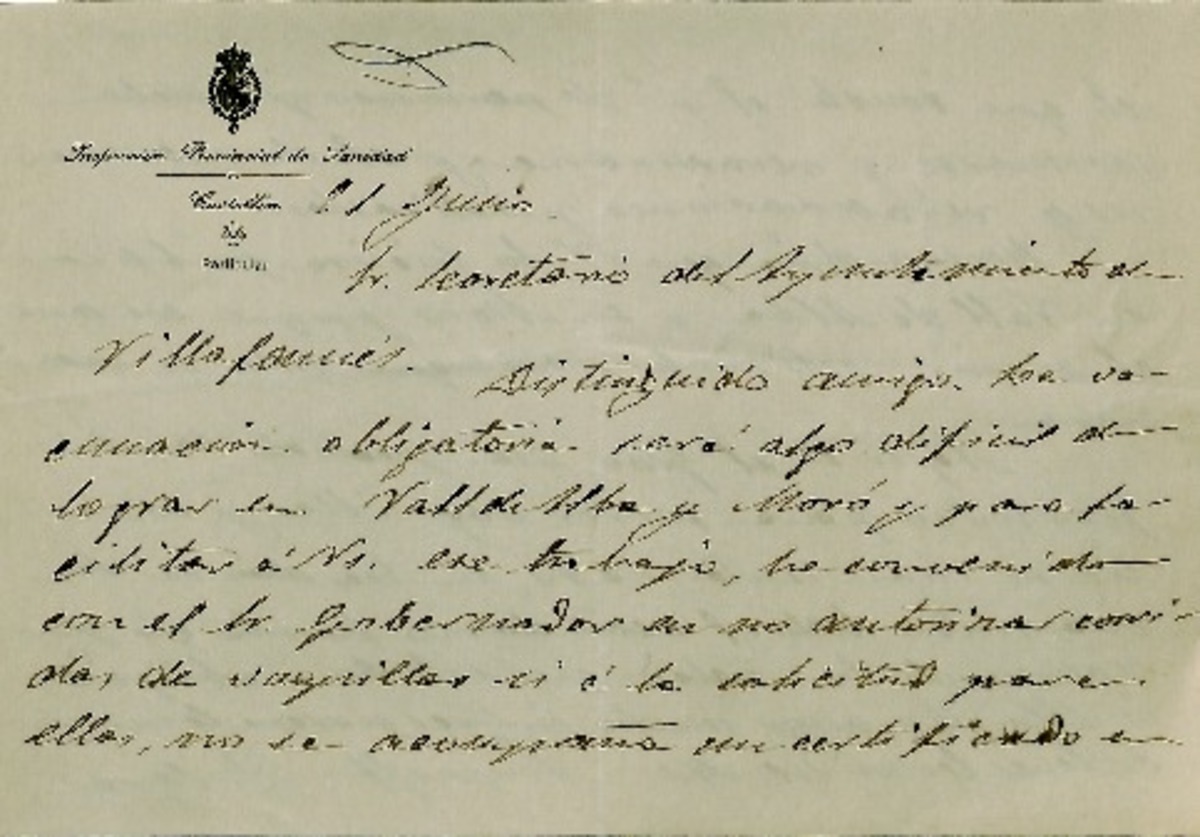 Inspección Provincial de Sanidad
Castellón
Particular
21 Junio
Sr. Secretario del Ayuntamiento de
Villafamés.
Distinguido amigo: La va-
cunación obligatoria será algo difícil de
lograr en Vall de Alba y Moró y para fa-
cilitar á Vs. ese trabajo, he convenido
con el Sr. Gobernador en no autorizar corri-
das de vaquillas si á la solicitud para
ellas, no se acompaña un certificado en